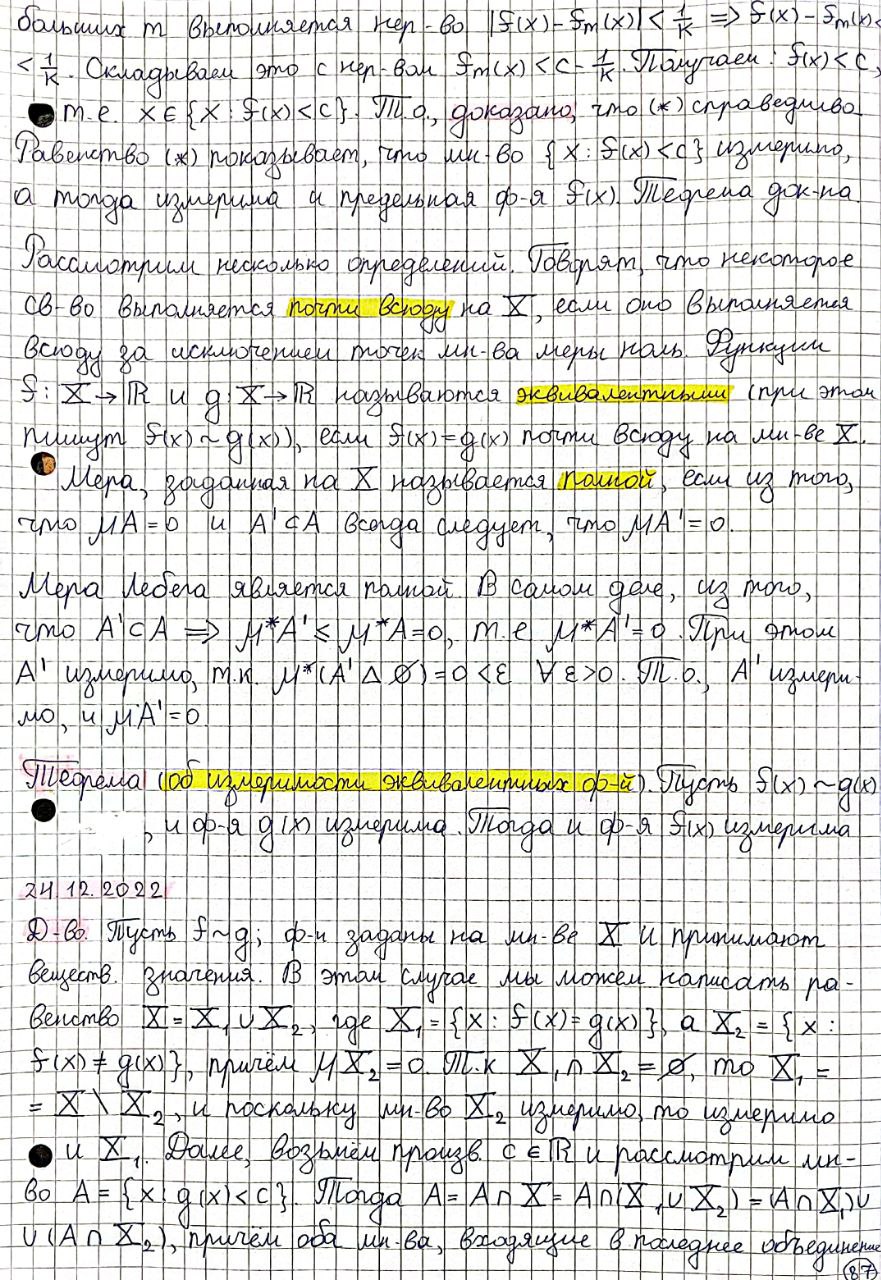 больших m выполняется нер-во |f(x)-fₘ(x)| < 1/K ⟹ f(x)-fₘ(x)<
< 1/K. Складываем это с нер-вом fₘ(x) < c - 1/K. Получаем: f(x) < c,
т.е. x ∈ {x : f(x) < c}. Т.о., доказано, что (*) справедливо.
Равенство (*) показывает, что мн-во {x : f(x) < c} измеримо,
а тогда измерима и предельная ф-я f(x). Теорема док-на.
Рассмотрим несколько определений. Говорят, что некоторое
св-во выполняется почти всюду на X, если оно выполняется
всюду за исключением точек мн-ва меры ноль. Функции
f: X → ℝ и g: X → ℝ называются эквивалентными (при этом
пишут f(x) ~ g(x)), если f(x) = g(x) почти всюду на мн-ве X.
Мера, заданная на X называется полной, если из того,
что μA = 0 и A' ⊂ A всегда следует, что μA' = 0.
Мера Лебега является полной. В самом деле, из того,
что A' ⊂ A ⟹ μ*A' ≤ μ*A = 0, т.е μ*A' = 0. При этом
A' измеримо, т.к. μ*(A' Δ ∅) = 0 < ε ∀ ε > 0. Т.о., A' измери-
мо, и μA' = 0.
Теорема (об измеримости эквивалентных ф-й). Пусть f(x) ~ g(x)
, и ф-я g(x) измерима. Тогда и ф-я f(x) измерима
24.12.2022
Д-во. Пусть f ~ g; ф-и заданы на мн-ве X и принимают
веществ. значения. В этом случае мы можем написать ра-
венство X = X₁ ∪ X₂, где X₁ = {x : f(x) = g(x)}, а X₂ = {x :
f(x) ≠ g(x)}, причём μX₂ = 0. Т.к X₁ ∩ X₂ = ∅, то X₁ =
= X \ X₂, и поскольку мн-во X₂ измеримо, то измеримо
и X₁. Далее, возьмём произв. c ∈ ℝ и рассмотрим мн-
во A = {x : g(x) < c}. Тогда A = A ∩ X = A ∩ (X₁ ∪ X₂) = (A ∩ X₁) ∪
∪ (A ∩ X₂), причём оба мн-ва, входящие в последнее объединение
87